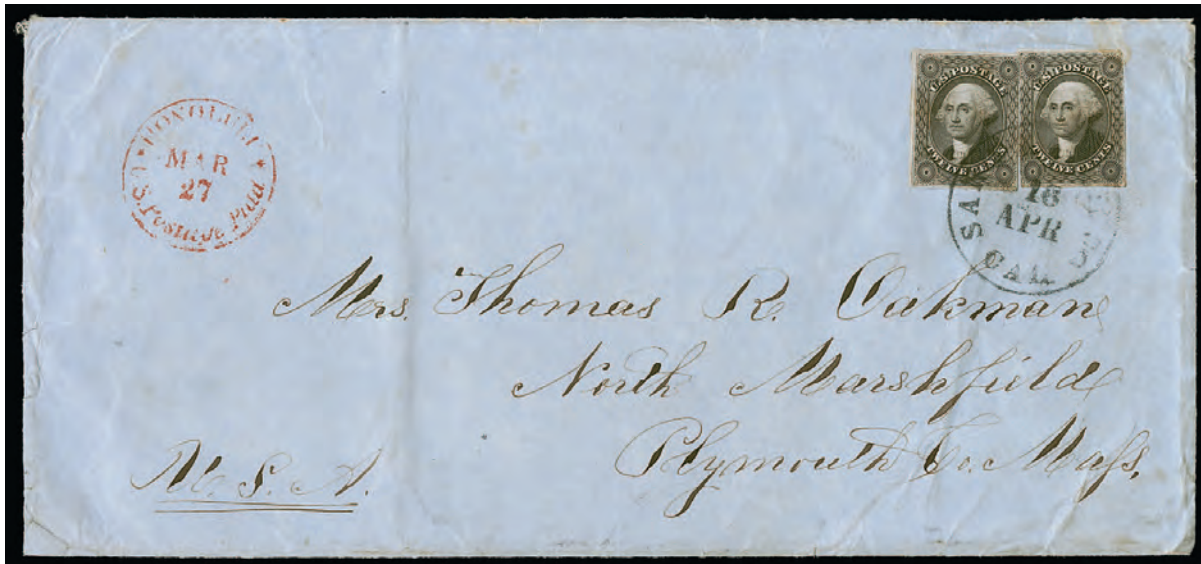 HONOLULU
MAR
27
U.S. Postage Paid
U.S. POSTAGE
TWELVE CENTS
U.S. POSTAGE
TWELVE CENTS
SAN
16
APR
CAL.
Mrs. Thomas R. Oakman
North Marshfield
Plymouth Co. Maſs.
U. S. A.